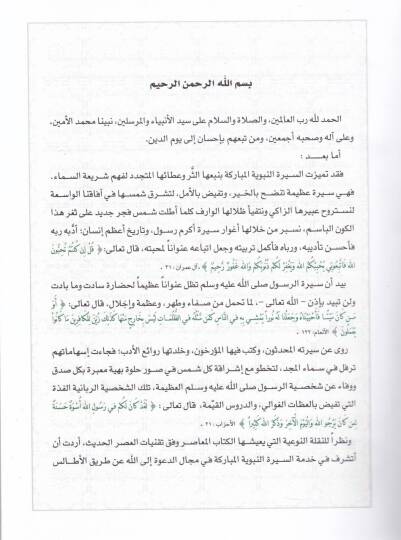 بسم الله الرحمن الرحيم
الحمد لله رب العالمين، والصلاة والسلام على سيد الأنبياء والمرسلين، نبينا محمد الأمين،
وعلى آله وصحبه أجمعين، ومن تبعهم بإحسان إلى يوم الدين.
أما بعـــد :
فقد تميزت السيرة النبوية المباركة بنبعها الثَّر وعطائها المتجدد لفهم شريعة السماء.
فهي سيرة عظيمة تنضح بالخير، وتفيض بالأمل، لتشرق شمسها في آفاقنا الواسعة
لنستروح عبيرها الزاكي ونتفيأ ظلالها الوارف كلما أطلت شمس فجر جديد على ثغر هذا
الكون الباسم، نسبر من خلالها أغوار سيرة أكرم رسول، وتاريخ أعظم إنسان: أدَّبه ربه
فأحسن تأديبه، ورباه فأكمل تربيته وجعل اتباعه عنواناً لمحبته، قال تعالى: ﴿ قُلْ إِن كُنتُمْ تُحِبُّونَ
اللَّهَ فَاتَّبِعُونِي يُحْبِبْكُمُ اللَّهُ وَيَغْفِرْ لَكُمْ ذُنُوبَكُمْ وَاللَّهُ غَفُورٌ رَّحِيمٌ ﴾ آل عمران : ٣١ .
بيد أن سيرة الرسول صلى الله عليه وسلم تظل عنواناً عظيماً لحضارة سادت وما بادت
ولن تبيد بإذن – الله تعالى –، لما تحمل من صفاء وطهر، وعظمة وإجلال، قال تعالى: ﴿ أَوَ
مَن كَانَ مَيْتًا فَأَحْيَيْنَاهُ وَجَعَلْنَا لَهُ نُورًا يَمْشِي بِهِ فِي النَّاسِ كَمَن مَّثَلُهُ فِي الظُّلُمَاتِ لَيْسَ بِخَارِجٍ مِّنْهَا كَذَلِكَ زُيِّنَ لِلْكَافِرِينَ مَا كَانُوا
يَعْمَلُونَ ﴾ الأنعام: ١٢٢ .
روى عن سيرته المحدثون، وكتب فيها المؤرخون، وخلدتها روائع الأدب؛ فجاءت إسهاماتهم
ترفل في سماء المجد، لتخطو مع إشراقة كل شمس في صور حلوة بهية معبرة بكل صدق
ووفاء عن شخصية الرسول صلى الله عليه وسلم العظيمة، تلك الشخصية الربانية الفذة
التي تفيض بالعظات الغوالي، والدروس القيِّمة، قال تعالى : ﴿ لَقَدْ كَانَ لَكُمْ فِي رَسُولِ اللَّهِ أُسْوَةٌ حَسَنَةٌ
لِّمَن كَانَ يَرْجُو اللَّهَ وَالْيَوْمَ الْآخِرَ وَذَكَرَ اللَّهَ كَثِيرًا ﴾ الأحزاب : ٢١ .
ونظراً للنقلة النوعية التي يعيشها الكتاب المعاصر وفق تقنيات العصر الحديث، أردت أن
أتشرف في خدمة السيرة النبوية المباركة في مجال الدعوة إلى الله عن طريق الأطالس